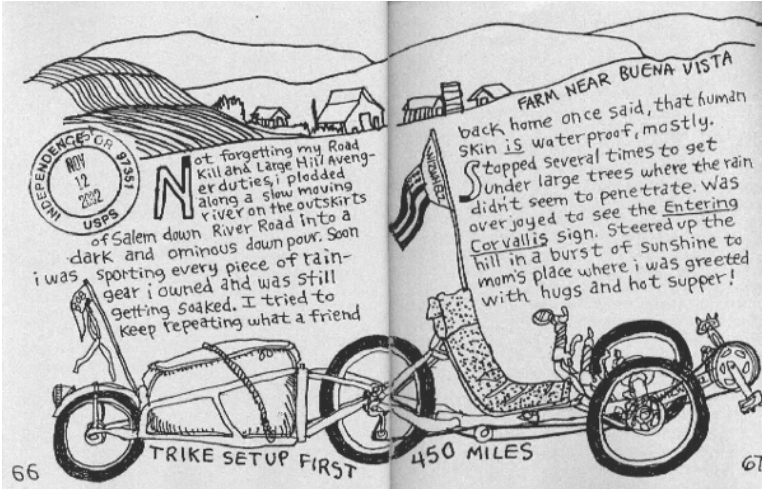 INDEPENDENCE OR 97351
NOV
12
USPS
Not forgetting my Road
Kill and Large Hill Aveng-
er duties, i plodded
along a slow moving
river on the outskirts
of Salem down River Road into a
dark and ominous downpour. Soon
i was sporting every piece of rain-
gear i owned and was still
getting soaked. I tried to
keep repeating what a friend
TRIKE SETUP FIRST
66
FARM NEAR BUENA VISTA
back home once said, that human
skin is waterproof, mostly.
Stopped several times to get
under large trees where the rain
didn't seem to penetrate. Was
overjoyed to see the Entering
Corvallis sign. Steered up the
hill in a burst of sunshine to
mom's place where i was greeted
with hugs and hot supper!
450 MILES
67